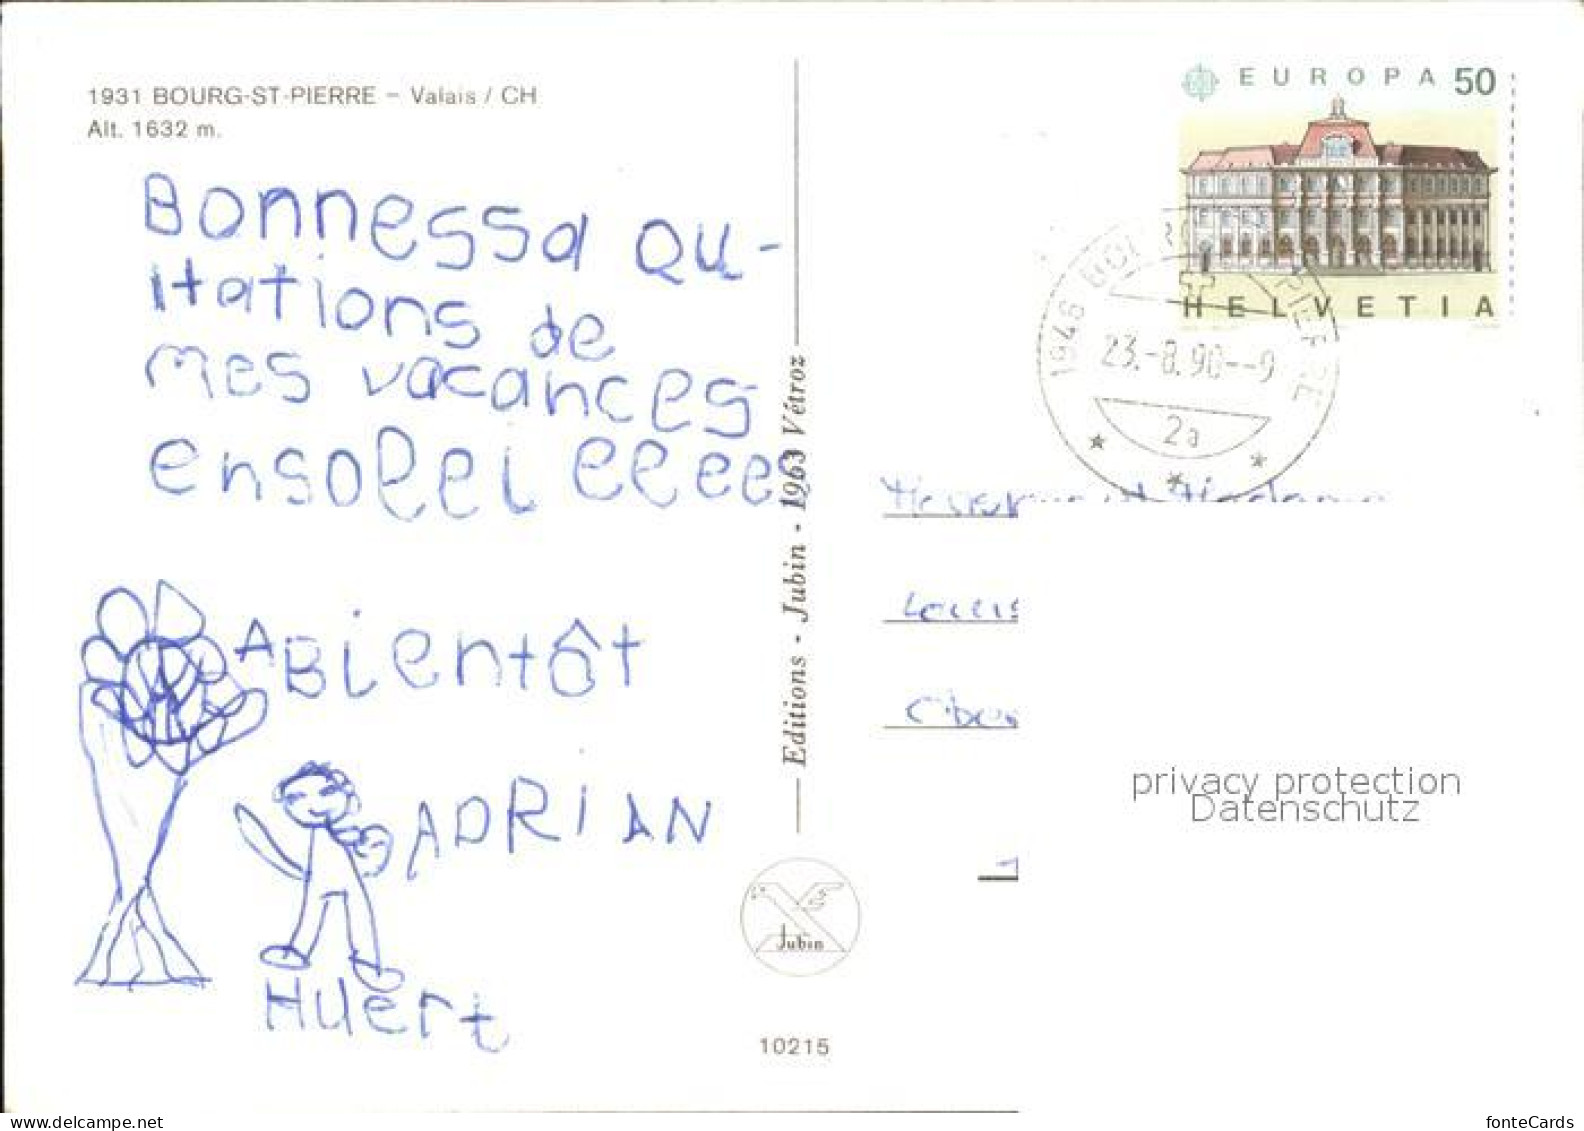 1931 BOURG-ST-PIERRE – Valais / CH
Alt. 1632 m.
Bonnessa qu-
itations de
mes vacances
ensolei eeees
A Bientôt
ADRIAN
Huert
Editions - Jubin - 1963 Vétroz
Jubin
10215
EUROPA 50
HELVETIA
1946 BOURG ST PIERRE
23.-8.90--9
2a
privacy protection
Datenschutz
www.delcampe.net
fonteCards